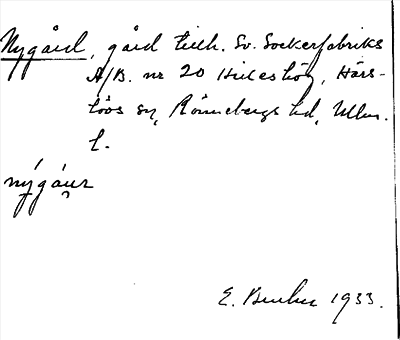 Nygård, gård tillh. Sv. Sockerfabriks
A/B. nr 20 Hilleshög, Härs-
lövs sn, Rönnebergs hd, Mlm.
l.
nýgáuɽ
E. 1933.